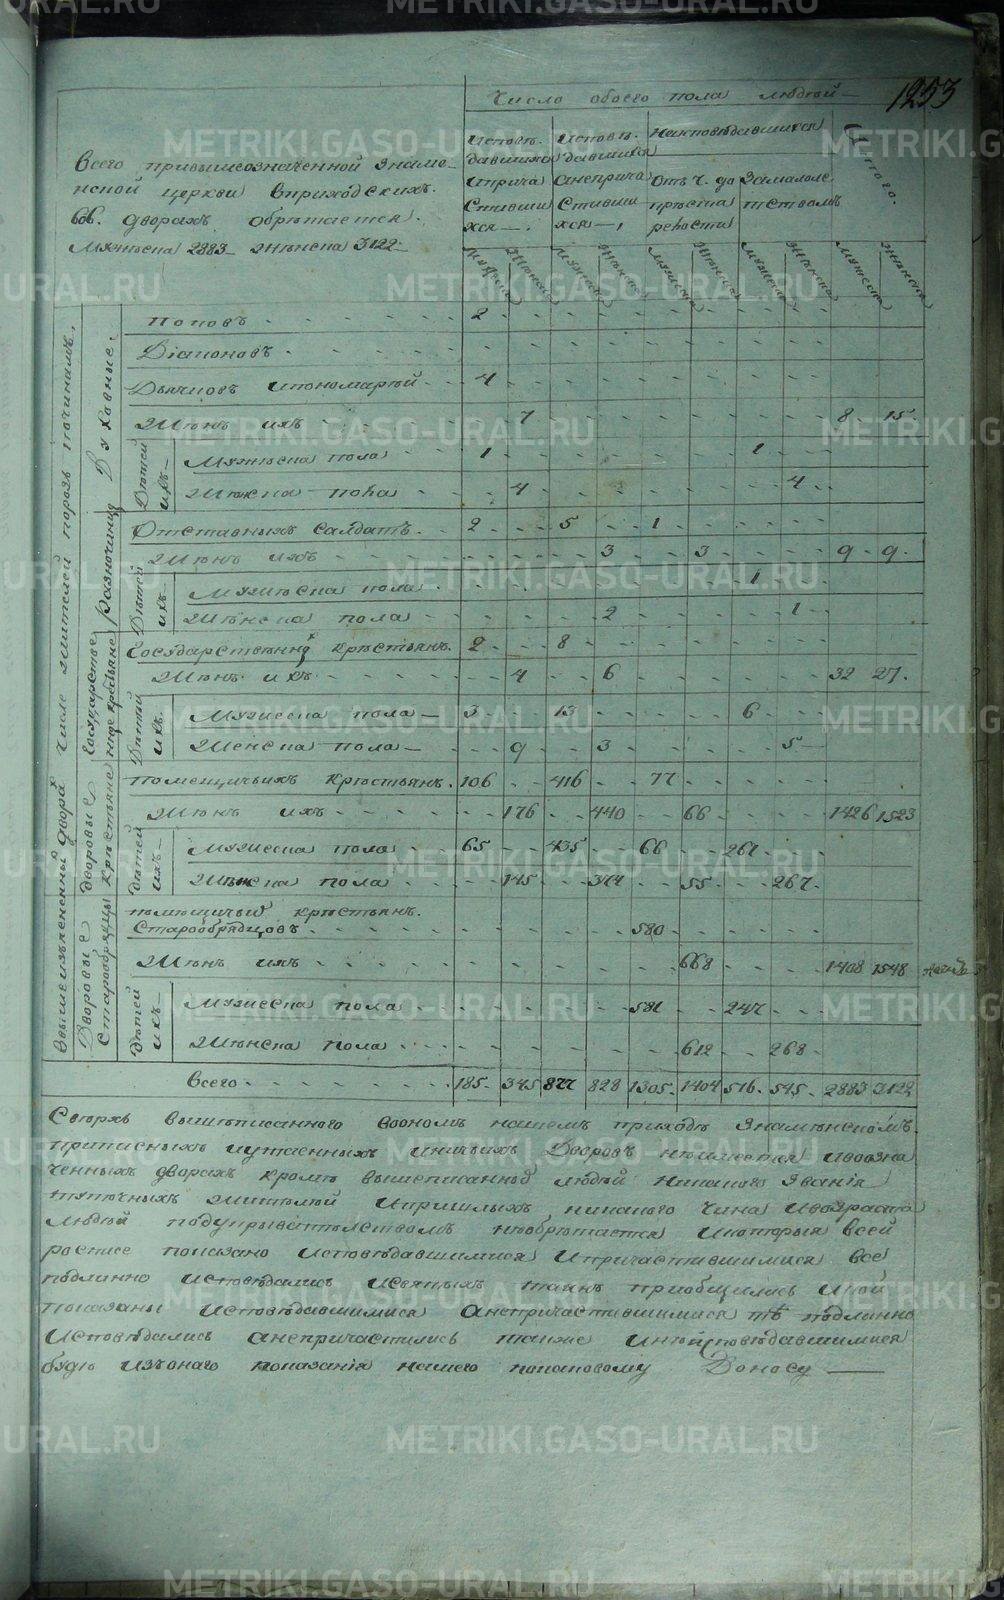 1253
Число обоего пола людей
Всего привышеозначенной Знаме-
нской церкви вприходскихъ.
вов. дворахъ обрѣтается.
Мужеска 2883 Женска 3122
Исповѣ-
давшихся
иприча
стивши
хся
Исповѣ-
давшихся
анеприча
стивши
хся
Неисповѣдавшихся
Отъ Ч. до
пристра
Замалолѣ
тствомъ
Итого.
Мужеска Женска Мужеска Женска Мужеска Женска Мужеска Женска Мужеска Женска
Ввышеизъявленныхъ дворахъ числе жителей порознь починамъ.
Духовные.
Поповъ 2
Діаконовъ
Дьячковъ ипономарей 4
Женъ ихъ 7 8 15
Дѣтей ихъ
Мужеска пола 1 1
Женска пола 4 4
Разночинцы
Отставныхъ салдатъ 2 5 1
Женъ ихъ 3 3 9 9
Дѣтей ихъ
Мужеска пола 1
Женска пола 2 1
Государстве
нные крестьяне
Государственныхъ крестьянъ 2 8
Женъ ихъ 4 6 32 27
Дѣтей ихъ
Мужеска пола 3 13 6
Женска пола 9 3 5
Дворовые
крестьяне
Помещичьихъ крестьянъ 106 416 77
Женъ ихъ 176 440 66 1426 1523
Дѣтей ихъ
Мужеска пола 65 435 66 261
Женска пола 145 374 55 267
Дворовые
Старообрядцы
помещичьихъ крестьянъ
Старообрядцовъ 580
Женъ ихъ 668 1408 1548
Дѣтей ихъ
Мужеска пола 581 247
Женска пола 612 268
Всего 185 345 877 828 1305 1404 516 545 2883 3122
Сверхъ вышеписанного воономъ нашемъ приходѣ Знаменскомъ
приписныхъ иутаенныхъ иничьихъ Дворовъ неимеется ивоозна
ченныхъ дворахъ кроме вышеписанныхъ людей никакого званія
тутошныхъ жителей ипришлыхъ никакого чина ивозраста
людей подукрывательствомъ необрѣтается икоторыя всей
росписе показано исповѣдавшимися ипричастившимися все
подлинно исповѣдались исвятыхъ таинъ приобщились икои
показаны исповѣдавшимися анепричастившимися тѣ подлинно
исповѣдались анепричастились также инеисповѣдавшимися
буде изъоного показанія нашего покаковому Доносу
METRIKI.GASO-URAL.RU